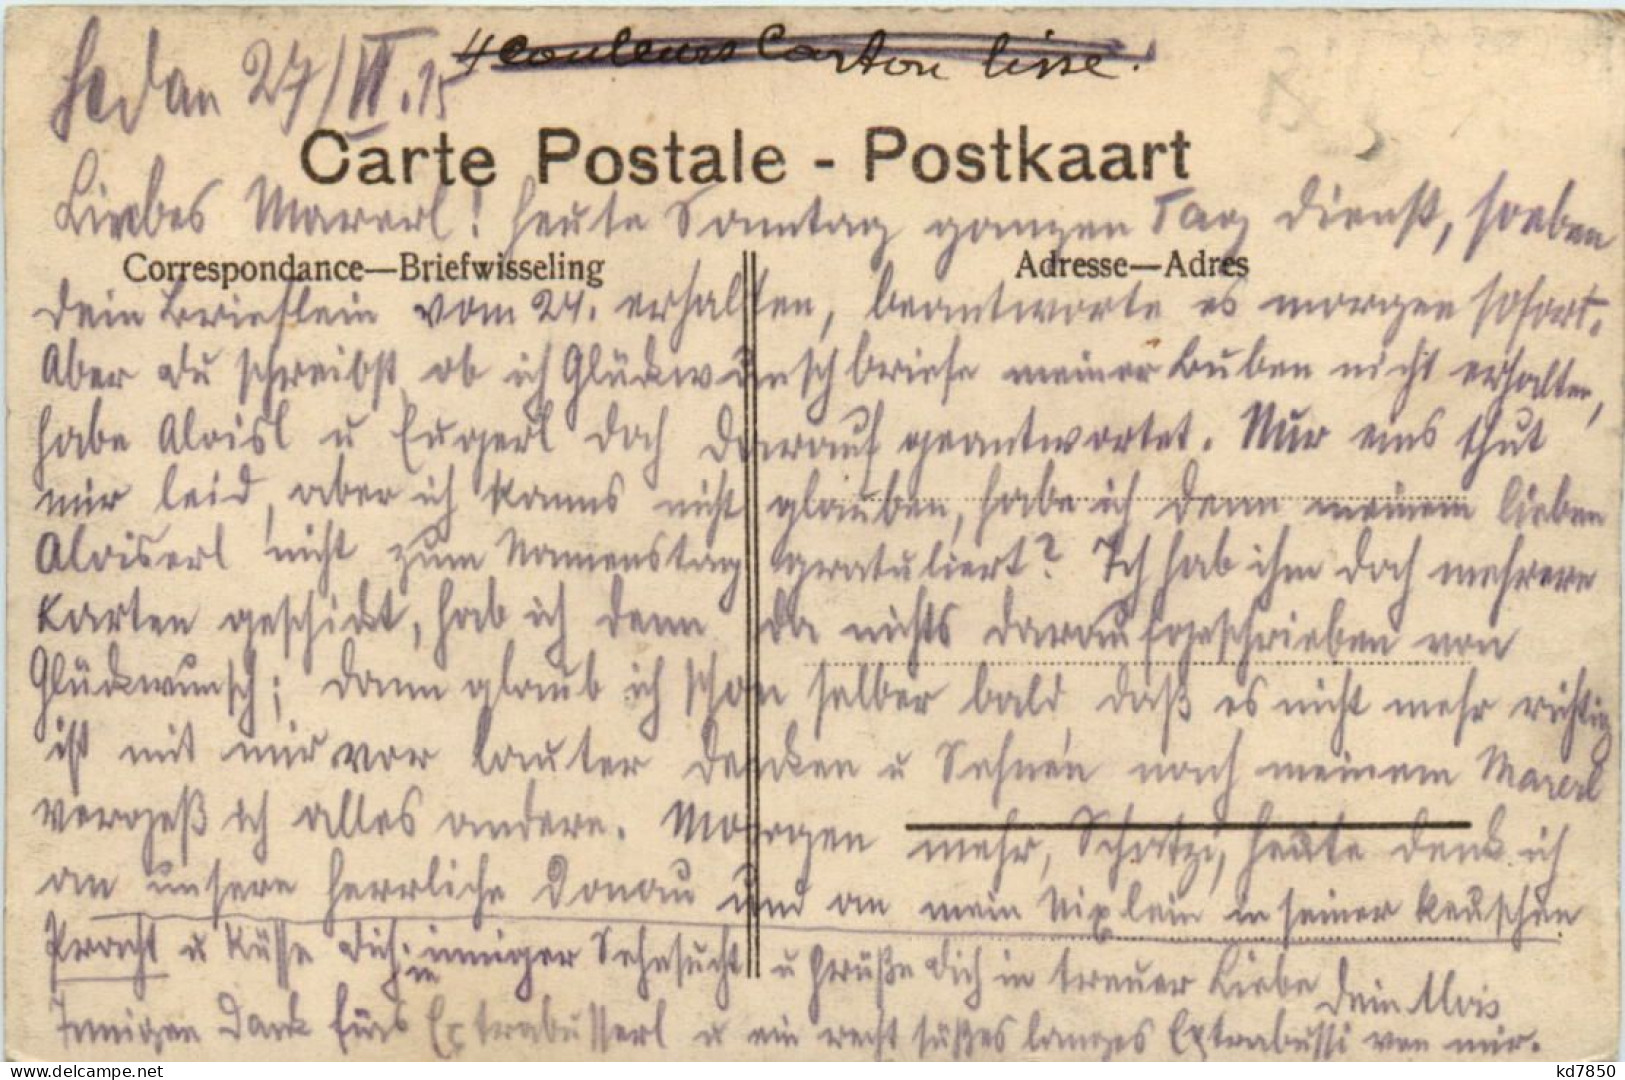 Sedan 27/VI.15
4 couleurs Carton lisse.
Carte Postale - Postkaart
Liebes Marerl! heute Sonntag ganzen Tag Dienst, soeben
Correspondance—Briefwisseling
Adresse—Adres
dein Brieflein vom 24. erhalten, beantworte es morgen sofort.
Aber du schreibst ob ich Glückwunschbriefe meiner Buben nicht erhalten,
habe Aloisl u Eugerl doch darauf geantwortet. Nur eins thut
mir leid, aber ich kanns nicht glauben, habe ich denn meinem lieben
Aloiserl nicht zum Namenstag gratuliert? Ich hab ihm doch mehrere
Karten geschickt, hab ich denn da nichts daraufgeschrieben von
Glückwunsch; dann glaub ich schon selber bald daß es nicht mehr richtig
ist mit mir vor lauter denken u Sehnen nach meinem Marerl
vergeß ich alles andere. Morgen mehr, Schatzi, heute denk ich
an unsere herrliche Donau und an mein Nixlein in seiner keuschen
Pracht u küsse dich in inniger Sehnsucht u grüße dich in treuer Liebe
dein Alois
Innigen Dank fürs Extrabusserl u ein recht süßes langes Extrabussi von mir.
kd7850